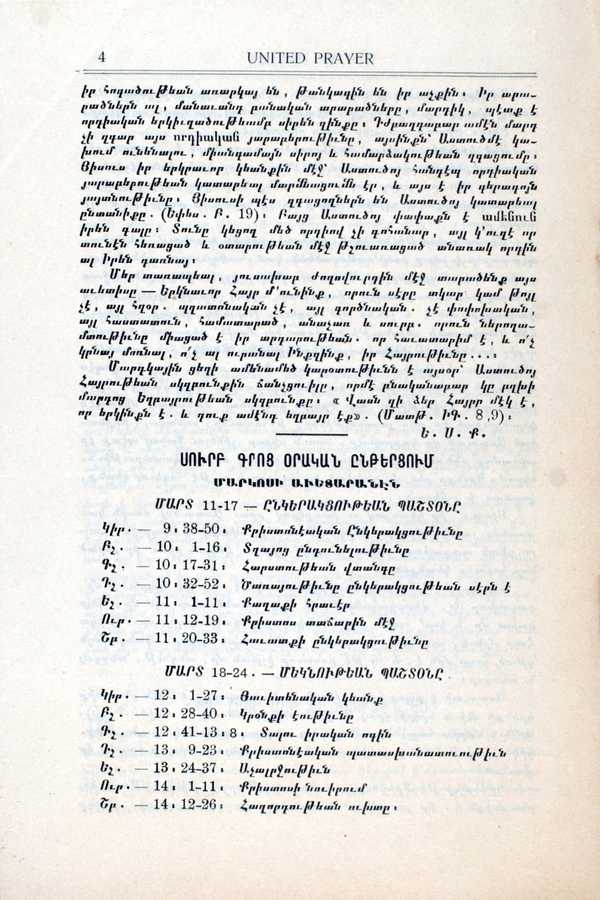 4 UNITED PRAYER
իր հոգածութեան առարկայ են, թանկագին են իր աչքին։ Իր արա-
րածներն ալ, մանաւանդ բանական արարածները, մարդիկ, պէտք է
որդիական երկիւղածութեամբ սիրեն զինքը։ Դժբաղդաբար ամէն մարդ
չի զգար այս որդիական յարաբերութիւնը, այսինքն՝ Աստուծմէ կա-
խում ունենալու, միանգամայն սիրոյ և համարձակութեան զգացումը։
Յիսուս իր երկրաւոր կեանքին մէջ՝ Աստուծոյ հանդէպ որդիական
յարաբերութեան կատարեալ մարմնացումն էր, և այս է իր գերագոյն
յայտնութիւնը։ Յիսուսի պէս զգացողներն են Աստուծոյ կատարեալ
ընտանիքը. (Եփես. Բ. 19)։ Բայց Աստուծոյ փափաքն է ամենուն
իրեն գալը։ Տունը կեցող մեծ որդիով չի գոհանար, այլ կ՚ուզէ որ
տունէն հեռացած և օտարութեան մէջ թշուառացած անառակ որդին
ալ իրեն դառնայ։
Մեր տառապեալ, յուսախաբ ժողովուրդին մէջ տարածենք այս
աւետիսը — Երկնաւոր Հայր մ՚ունինք, որուն սէրը տկար կամ թոյլ
չէ, այլ հզօր. պղատոնական չէ, այլ գործնական. չէ փոփոխական,
այլ հաստատուն, համատարած, անաչառ և սուրբ. որուն ներողա-
մտութիւնը միացած է իր արդարութեան. որ հաւատարիմ է, և ո՛չ
կրնայ մոռնալ, ո՛չ ալ ուրանալ Ինքզինք, իր Հայրութիւնը...։
Մարդկային ցեղի ամենամեծ կարօտութիւնն է այսօր՝ Աստուծոյ
Հայրութեան սկզբունքին ճանչցուիլը, որմէ բնականաբար կը բղխի
մարդոց Եղբայրութեան սկզբունքը։ «Վասն զի ձեր Հայրը մէկ է,
որ երկինքն է. և դուք ամէնդ եղբայր էք». (Մատթ. ԻԳ. 8,9)։
Ե. Ս. Ք.
ՍՈՒՐԲ ԳՐՈՑ ՕՐԱԿԱՆ ԸՆԹԵՐՑՈՒՄ
ՄԱՐԿՈՍԻ ԱՒԵՏԱՐԱՆԷՆ
ՄԱՐՏ 11-17 — ԸՆԿԵՐԱԿՑՈՒԹԵԱՆ ՊԱՇՏՕՆԸ
Կիր. — 9։ 38-50։ Քրիստոնէական Ընկերակցութիւնը
Բշ. — 10։ 1-16։ Տղայոց ընդունելութիւնը
Գշ. — 10։ 17-31։ Հարստութեան վտանգը
Դշ. — 10։ 32-52։ Ծառայութիւնը ընկերակցութեան սէրն է
Եշ. — 11։ 1-11։ Քաղաքի հրաւէր
Ուր. — 11։ 12-19։ Քրիստոս տաճարին մէջ
Շբ. — 11։ 20-33։ Հաւատքի ընկերակցութիւնը
ՄԱՐՏ 18-24. — ՄԵԿՆՈՒԹԵԱՆ ՊԱՇՏՕՆԸ.
Կիր. — 12։ 1-27։ Յաւիտենական կեանք
Բշ. — 12։ 28-40։ Կրօնքի էութիւնը
Գշ. — 12։ 41-13։ 8։ Տալու իրական ոգին
Դշ. — 13։ 9-23։ Քրիստոնէական պատասխանատուութիւն
Եշ. — 13։ 24-37։ Աչալրջութիւն
Ուր. — 14։ 1-11։ Քրիստոսի նուիրում
Շբ. — 14։ 12-26։ Հաղորդութեան ուխտը։